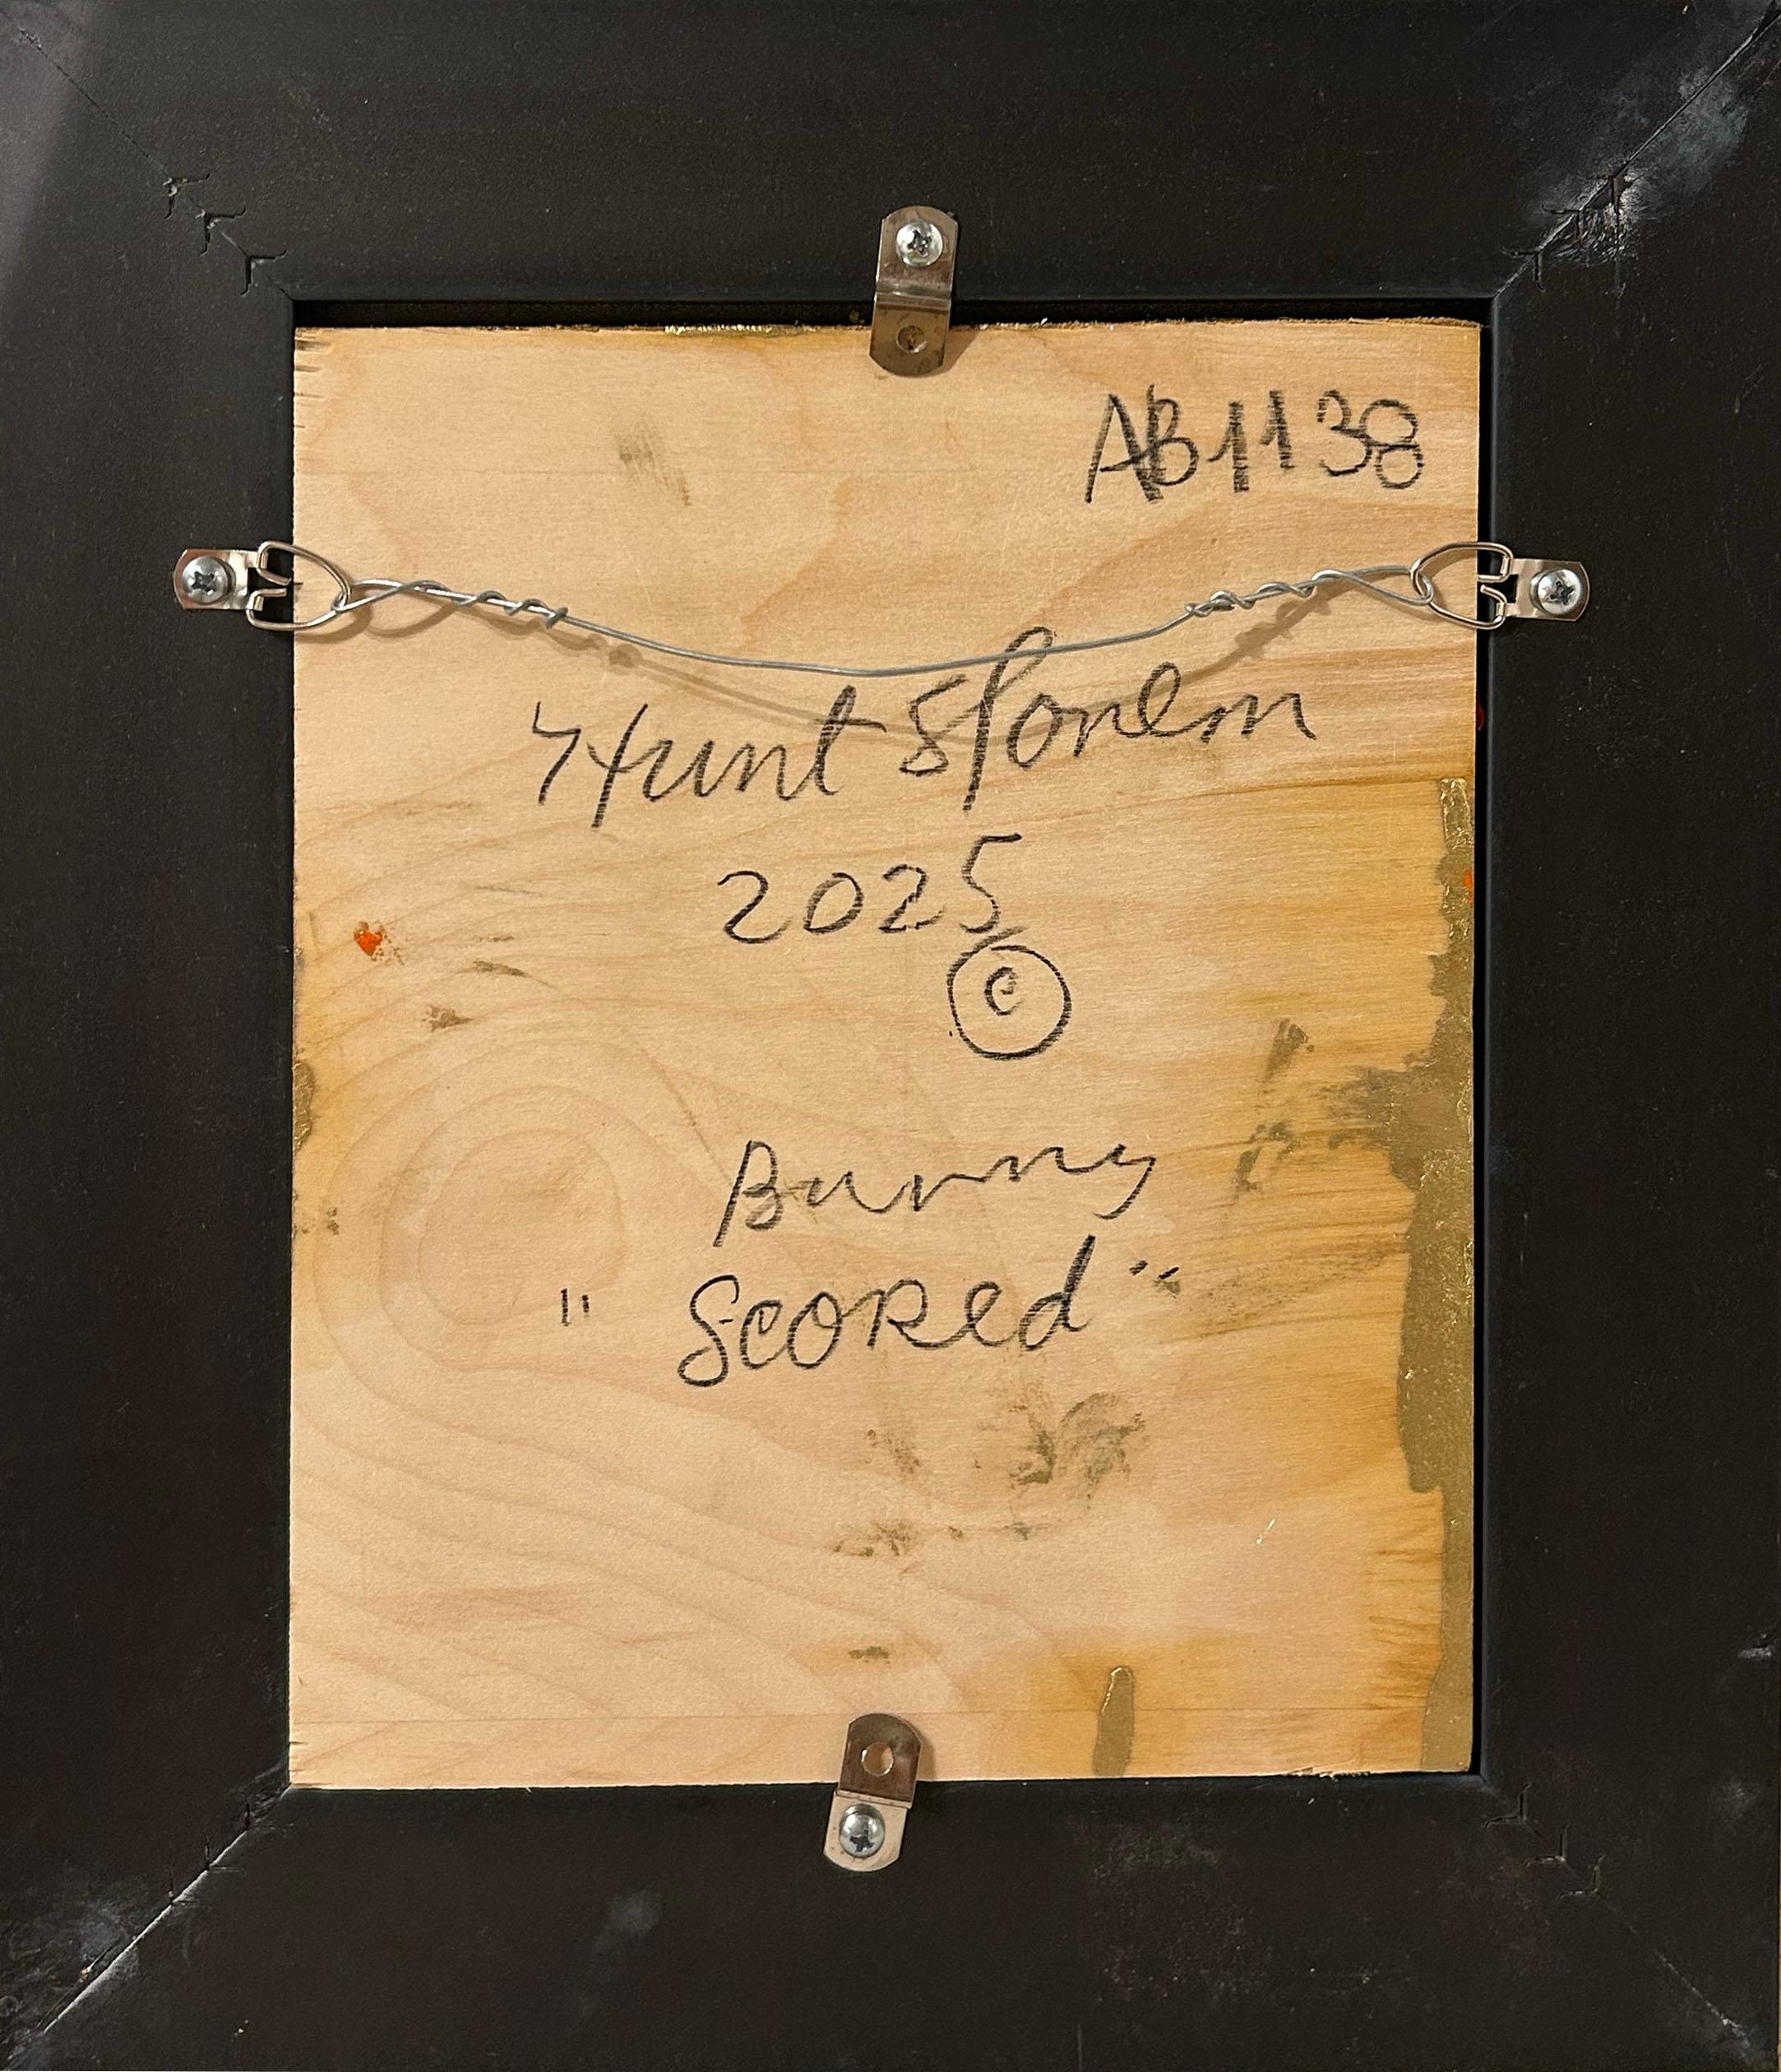 AB1138
Hunt Slonem
2025
©
Bunny
"Scored"